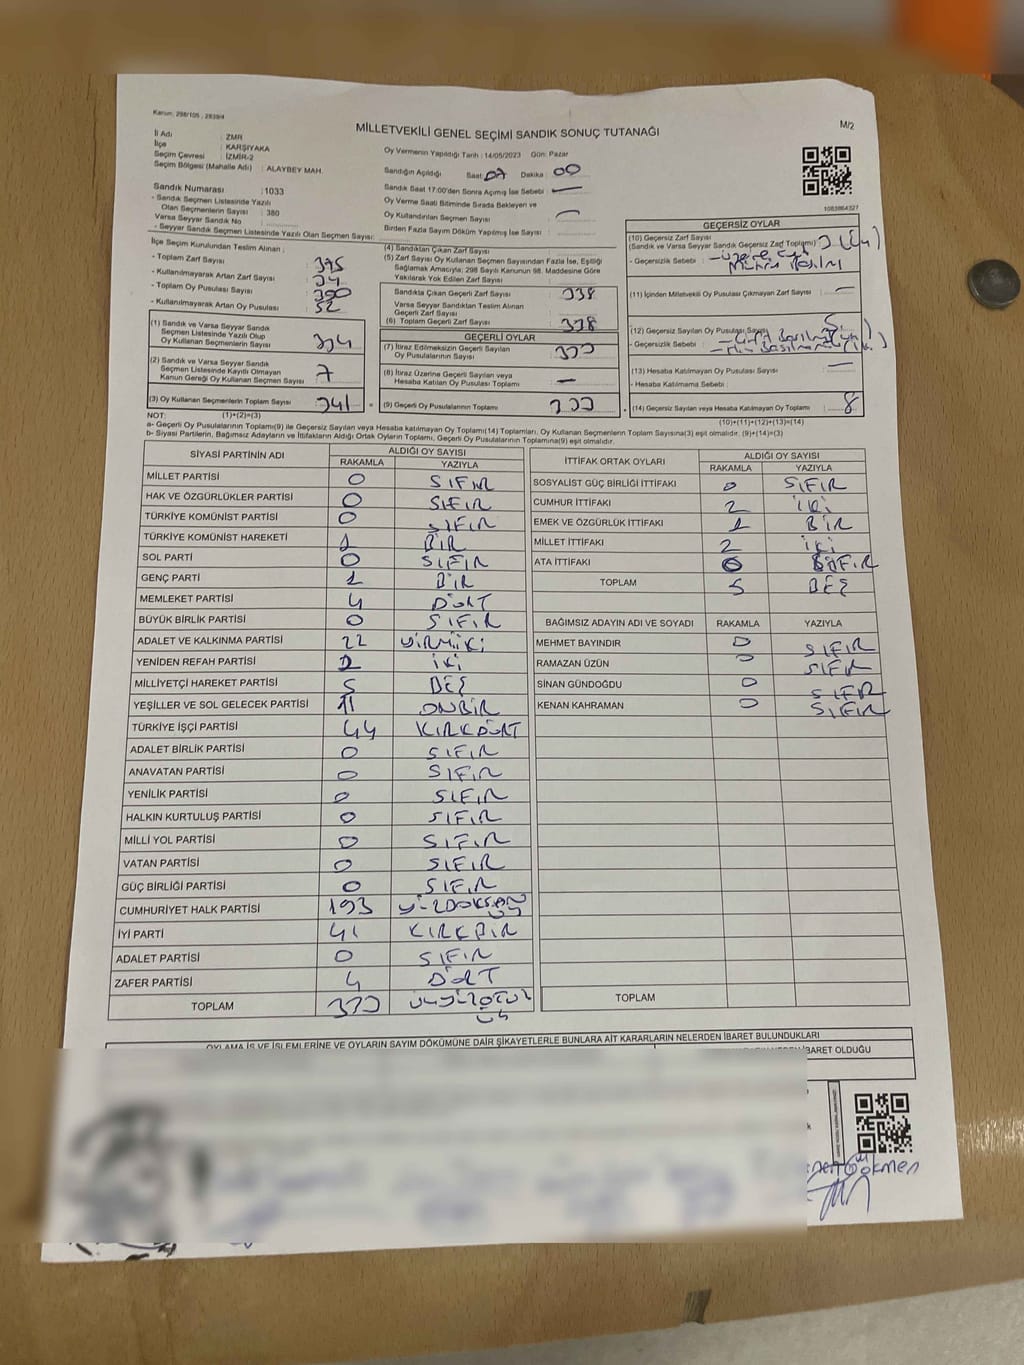 Kanun: 298/105 , 2839/4
M/2
MİLLETVEKİLİ GENEL SEÇİMİ SANDIK SONUÇ TUTANAĞI
İl Adı : ZMR
İlçe : KARŞIYAKA
Seçim Çevresi : İZMİR-2
Seçim Bölgesi (Mahalle Adı) : ALAYBEY MAH.
Sandık Numarası : 1033
- Sandık Seçmen Listesinde Yazılı
Olan Seçmenlerin Sayısı : 380
Varsa Seyyar Sandık No
- Seyyar Sandık Seçmen Listesinde Yazılı Olan Seçmen Sayısı:
Oy Vermenin Yapıldığı Tarih : 14/05/2023 Gün: Pazar
Sandığın Açıldığı Saat 07 Dakika 00
Sandık Saat 17:00'den Sonra Açılmış İse Sebebi : —
Oy Verme Saati Bitiminde Sırada Bekleyen ve
Oy Kullandırılan Seçmen Sayısı —
Birden Fazla Sayım Döküm Yapılmış İse Sayısı : —
1083864327
İlçe Seçim Kurulundan Teslim Alınan ;
- Toplam Zarf Sayısı : 375
- Kullanılmayarak Artan Zarf Sayısı : 34
- Toplam Oy Pusulası Sayısı : 390
- Kullanılmayarak Artan Oy Pusulası : 52
(1) Sandık ve Varsa Seyyar Sandık
Seçmen Listesinde Yazılı Olup
Oy Kullanan Seçmenlerin Sayısı 334
(2) Sandık ve Varsa Seyyar Sandık
Seçmen Listesinde Kayıtlı Olmayan
Kanun Gereği Oy Kullanan Seçmen Sayısı 7
(3) Oy Kullanan Seçmenlerin Toplam Sayısı 341
(4) Sandıktan Çıkan Zarf Sayısı
(5) Zarf Sayısı Oy Kullanan Seçmen Sayısından Fazla İse, Eşitliği
Sağlamak Amacıyla; 298 Sayılı Kanunun 98. Maddesine Göre
Yakılarak Yok Edilen Zarf Sayısı
Sandıkta Çıkan Geçerli Zarf Sayısı 338
Varsa Seyyar Sandıktan Teslim Alınan
Geçerli Zarf Sayısı
(6) Toplam Geçerli Zarf Sayısı 338
GEÇERLİ OYLAR
(7) İtiraz Edilmeksizin Geçerli Sayılan
Oy Pusulalarının Sayısı 333
(8) İtiraz Üzerine Geçerli Sayılan veya
Hesaba Katılan Oy Pusulası Toplamı —
(9) Geçerli Oy Pusulalarının Toplamı 333
GEÇERSİZ OYLAR
(10) Geçersiz Zarf Sayısı
(Sandık ve Varsa Seyyar Sandık Geçersiz Zarf Toplamı) 3
- Geçersizlik Sebebi :
(11) İçinden Milletvekili Oy Pusulası Çıkmayan Zarf Sayısı —
(12) Geçersiz Sayılan Oy Pusulası Sayısı 5
- Geçersizlik Sebebi :
(13) Hesaba Katılmayan Oy Pusulası Sayısı —
- Hesaba Katılmama Sebebi :
(14) Geçersiz Sayılan veya Hesaba Katılmayan Oy Toplamı 8
NOT: (1)+(2)=(3)
(10)+(11)+(12)+(13)=(14)
a- Geçerli Oy Pusulalarının Toplamı(9) ile Geçersiz Sayılan veya Hesaba Katılmayan Oy Toplamı(14) Toplamları, Oy Kullanan Seçmenlerin Toplam Sayısına(3) eşit olmalıdır. (9)+(14)=(3)
b- Siyasi Partilerin, Bağımsız Adayların ve İttifakların Aldığı Ortak Oyların Toplamı, Geçerli Oy Pusulalarının Toplamına(9) eşit olmalıdır.
SİYASİ PARTİNİN ADI ALDIĞI OY SAYISI
RAKAMLA YAZIYLA
MİLLET PARTİSİ 0 SIFIR
HAK VE ÖZGÜRLÜKLER PARTİSİ 0 SIFIR
TÜRKİYE KOMÜNİST PARTİSİ 0 SIFIR
TÜRKİYE KOMÜNİST HAREKETİ 1 BİR
SOL PARTİ 0 SIFIR
GENÇ PARTİ 1 BİR
MEMLEKET PARTİSİ 4 DÖRT
BÜYÜK BİRLİK PARTİSİ 0 SIFIR
ADALET VE KALKINMA PARTİSİ 22 YİRMİİKİ
YENİDEN REFAH PARTİSİ 2 İKİ
MİLLİYETÇİ HAREKET PARTİSİ 5 BEŞ
YEŞİLLER VE SOL GELECEK PARTİSİ 11 ONBİR
TÜRKİYE İŞÇİ PARTİSİ 44 KIRKDÖRT
ADALET BİRLİK PARTİSİ 0 SIFIR
ANAVATAN PARTİSİ 0 SIFIR
YENİLİK PARTİSİ 0 SIFIR
HALKIN KURTULUŞ PARTİSİ 0 SIFIR
MİLLİ YOL PARTİSİ 0 SIFIR
VATAN PARTİSİ 0 SIFIR
GÜÇ BİRLİĞİ PARTİSİ 0 SIFIR
CUMHURİYET HALK PARTİSİ 193 YÜZDOKSAN
ÜÇ
İYİ PARTİ 41 KIRKBİR
ADALET PARTİSİ 0 SIFIR
ZAFER PARTİSİ 4 DÖRT
TOPLAM 333 ÜÇYÜZOTUZ
ÜÇ
İTTİFAK ORTAK OYLARI ALDIĞI OY SAYISI
RAKAMLA YAZIYLA
SOSYALİST GÜÇ BİRLİĞİ İTTİFAKI 0 SIFIR
CUMHUR İTTİFAKI 2 İKİ
EMEK VE ÖZGÜRLÜK İTTİFAKI 1 BİR
MİLLET İTTİFAKI 2 İKİ
ATA İTTİFAKI 0 SIFIR
TOPLAM 5 BEŞ
BAĞIMSIZ ADAYIN ADI VE SOYADI RAKAMLA YAZIYLA
MEHMET BAYINDIR 0 SIFIR
RAMAZAN ÜZÜN 0 SIFIR
SİNAN GÜNDOĞDU 0 SIFIR
KENAN KAHRAMAN 0 SIFIR
TOPLAM
OYLAMA İŞ VE İŞLEMLERİNE VE OYLARIN SAYIM DÖKÜMÜNE DAİR ŞİKAYETLERLE BUNLARA AİT KARARLARIN NELERDEN İBARET BULUNDUKLARI
İBARET OLDUĞU
Gökmen